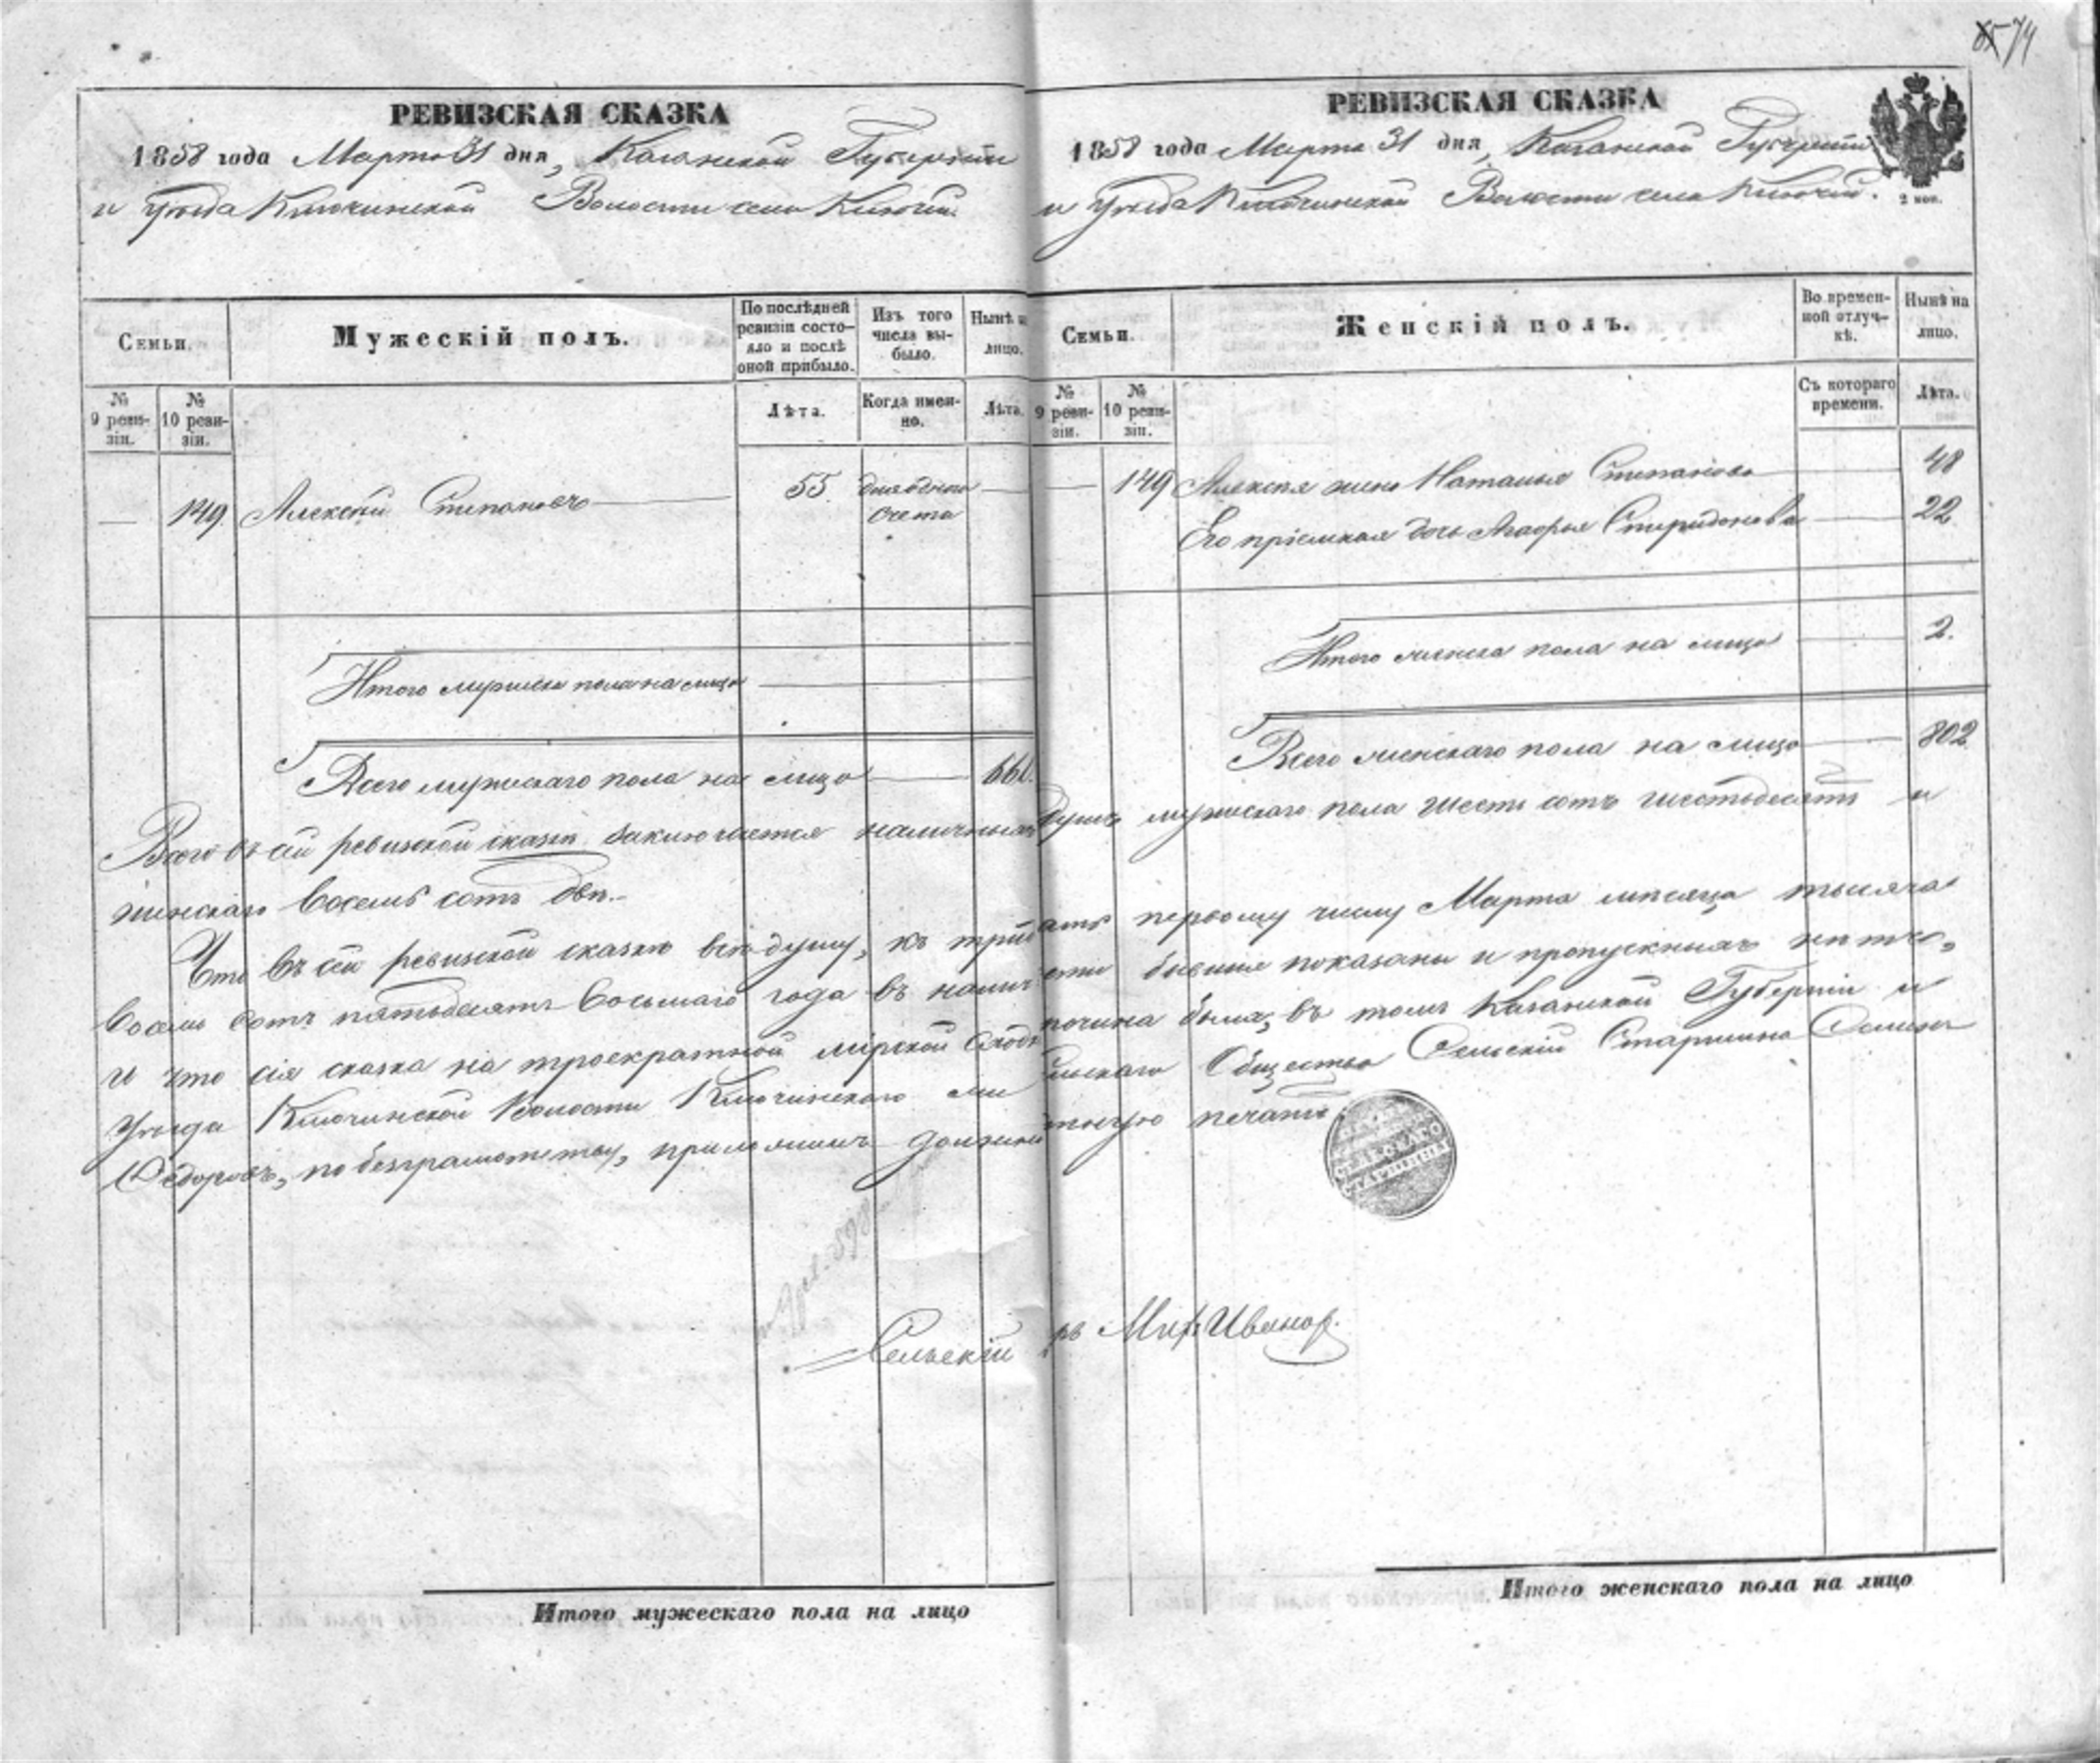 74
РЕВИЗСКАЯ СКАЗКА
1858 года Марта 31 дня, Казанской Губерніи
и Уѣзда Ключинской Волости села Ключи.
Семьи.
Мужескій полъ.
По послѣдней ревизіи состояло и послѣ оной прибыло.
Изъ того числа выбыло.
Нынѣ на лицо.
№ 9 ревизіи.
№ 10 ревизіи.
Лѣта.
Когда именно.
Лѣта.
— 149 Алексѣй Степановъ 55. для одного счета —
Итого мужеска пола на лицо —
Всего мужескаго пола на лицо — 661.
РЕВИЗСКАЯ СКАЗКА
1858 года Марта 31 дня, Казанской Губерніи
и Уѣзда Ключинской Волости села Ключи.
2 коп.
Семьи.
Женскій полъ.
Во временной отлучкѣ.
Нынѣ на лицо.
№ 9 ревизіи.
№ 10 ревизіи.
Съ котораго времени.
Лѣта.
— 149 Алексѣя жена Наталья Степанова — 48
Его пріемная дочь Агафья Спиридонова — 22
Итого женска пола на лицо — 2.
Всего женскаго пола на лицо — 802
Всего въ сей ревизской сказкѣ заключается наличныхъ душъ мужескаго пола шесть сотъ шестьдесятъ и
женскаго восемь сотъ двѣ.
Что въ сей ревизской сказкѣ всѣ души, къ тридцать первому числу Марта мѣсяца тысяча
восемь сотъ пятьдесятъ восьмаго года въ наличности бывшія показаны и пропускныхъ нѣтъ,
и что сія сказка на троекратной мірской сходкѣ была, въ томъ Казанской Губерніи и
Уѣзда Ключинской Волости Ключинскаго Сельскаго Общества Сельскій Старшина Семенъ
Ѳедоровъ, по безграмотству, приложилъ должностную печать.
СЕЛЬСКАГО
СТАРШИНЫ
Сельскій
Ивановъ.
Итого мужескаго пола на лицо
Итого женскаго пола на лицо